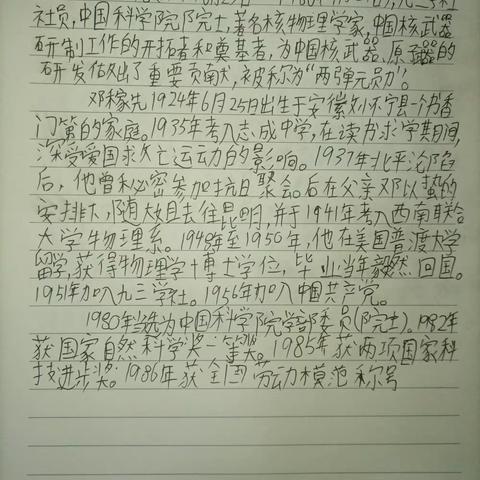 社员,中国科学院院士,著名核物理学家,中国核武器
研制工作的开拓者和奠基者,为中国核武器、原子器的
研发做出了重要贡献,被称为"两弹元勋"。
邓稼先1924年6月25日出生于安徽怀宁县一个书香
门第的家庭。1935年考入志成中学,在读书求学期间,
深受爱国救亡运动的影响。1937年北平沦陷
后,他曾秘密参加抗日聚会。后在父亲邓以蛰的
安排下,随大姐去往昆明,并于1941年考入西南联合
大学物理系。1948年至1950年,他在美国普渡大学
留学,获得物理学博士学位,毕业当年毅然回国。
1951年加入九三学社。1956年加入中国共产党。
1980年当选为中国科学院学部委员(院士)。1982年
获国家自然科学奖一等奖。1985年获两项国家科
技进步奖。1986年获全国劳动模范称号